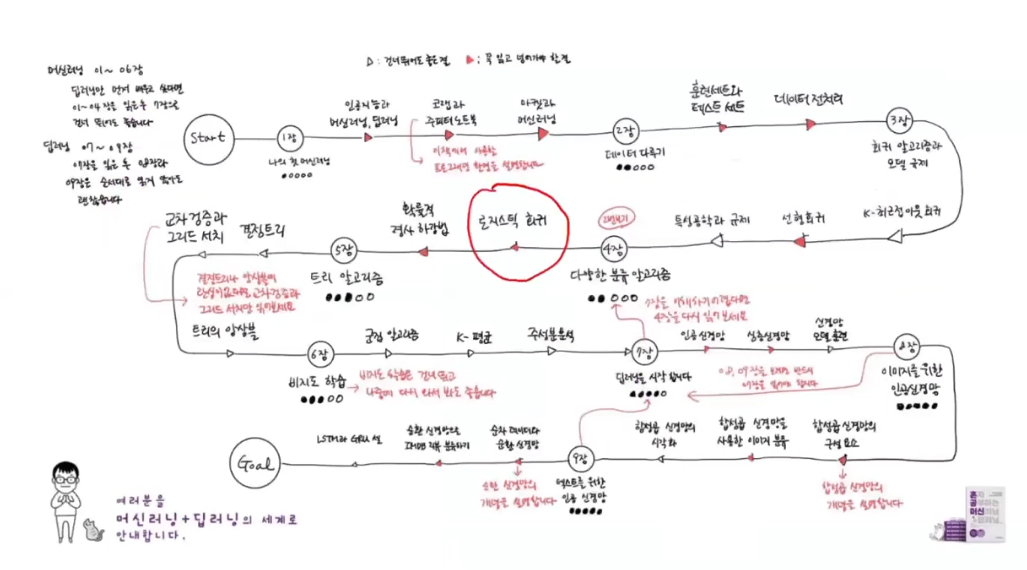 ▷ : 건너뛰어도 좋은 절 ▶ : 꼭 읽고 넘어가야 할 절
머신러닝 01~06장
딥러닝만 먼저 배우고 싶다면
01~04장을 읽은 후 7장으로
건너 뛰어도 좋습니다
딥러닝 07~09장
07장을 읽은 후 08장과
09장은 순서대로 읽지 않아도
괜찮습니다
Start
1장
나의 첫 머신러닝
인공지능과
머신러닝, 딥러닝
코랩과
주피터 노트북
이 책에서 사용할
프로그래밍 환경을 설명합니다
마켓과
머신러닝
2장
데이터 다루기
훈련 세트와
테스트 세트
데이터 전처리
3장
회귀 알고리즘과
모델 규제
K-최근접 이웃 회귀
선형 회귀
특성 공학과 규제
4장
다양한 분류 알고리즘
로지스틱 회귀
확률적
경사 하강법
5장
트리 알고리즘
결정 트리
교차 검증과
그리드 서치
결정 트리나 앙상블에
관심이 없다면 교차 검증과
그리드 서치만 읽어보세요
트리의 앙상블
6장
비지도 학습
비지도 학습은 건너 뛰고
나중에 다시 와서 봐도 좋습니다
군집 알고리즘
K-평균
주성분 분석
7장
딥러닝을 시작합니다
7장을 이해하기 어렵다면
4장을 다시 읽어보세요
인공 신경망
심층 신경망
신경망
모델 훈련
8장
이미지를 위한
인공 신경망
합성곱 신경망의
구성 요소
합성곱 신경망의
개념을 설명합니다
합성곱 신경망을
사용한 이미지 분류
합성곱 신경망의
시각화
9장
텍스트를 위한
인공 신경망
순차 데이터와
순환 신경망
순환 신경망의
개념을 설명합니다
순환 신경망으로
IMDB 리뷰 분류하기
LSTM과 GRU 셀
Goal
여러분을
머신러닝+딥러닝의 세계로
안내합니다.